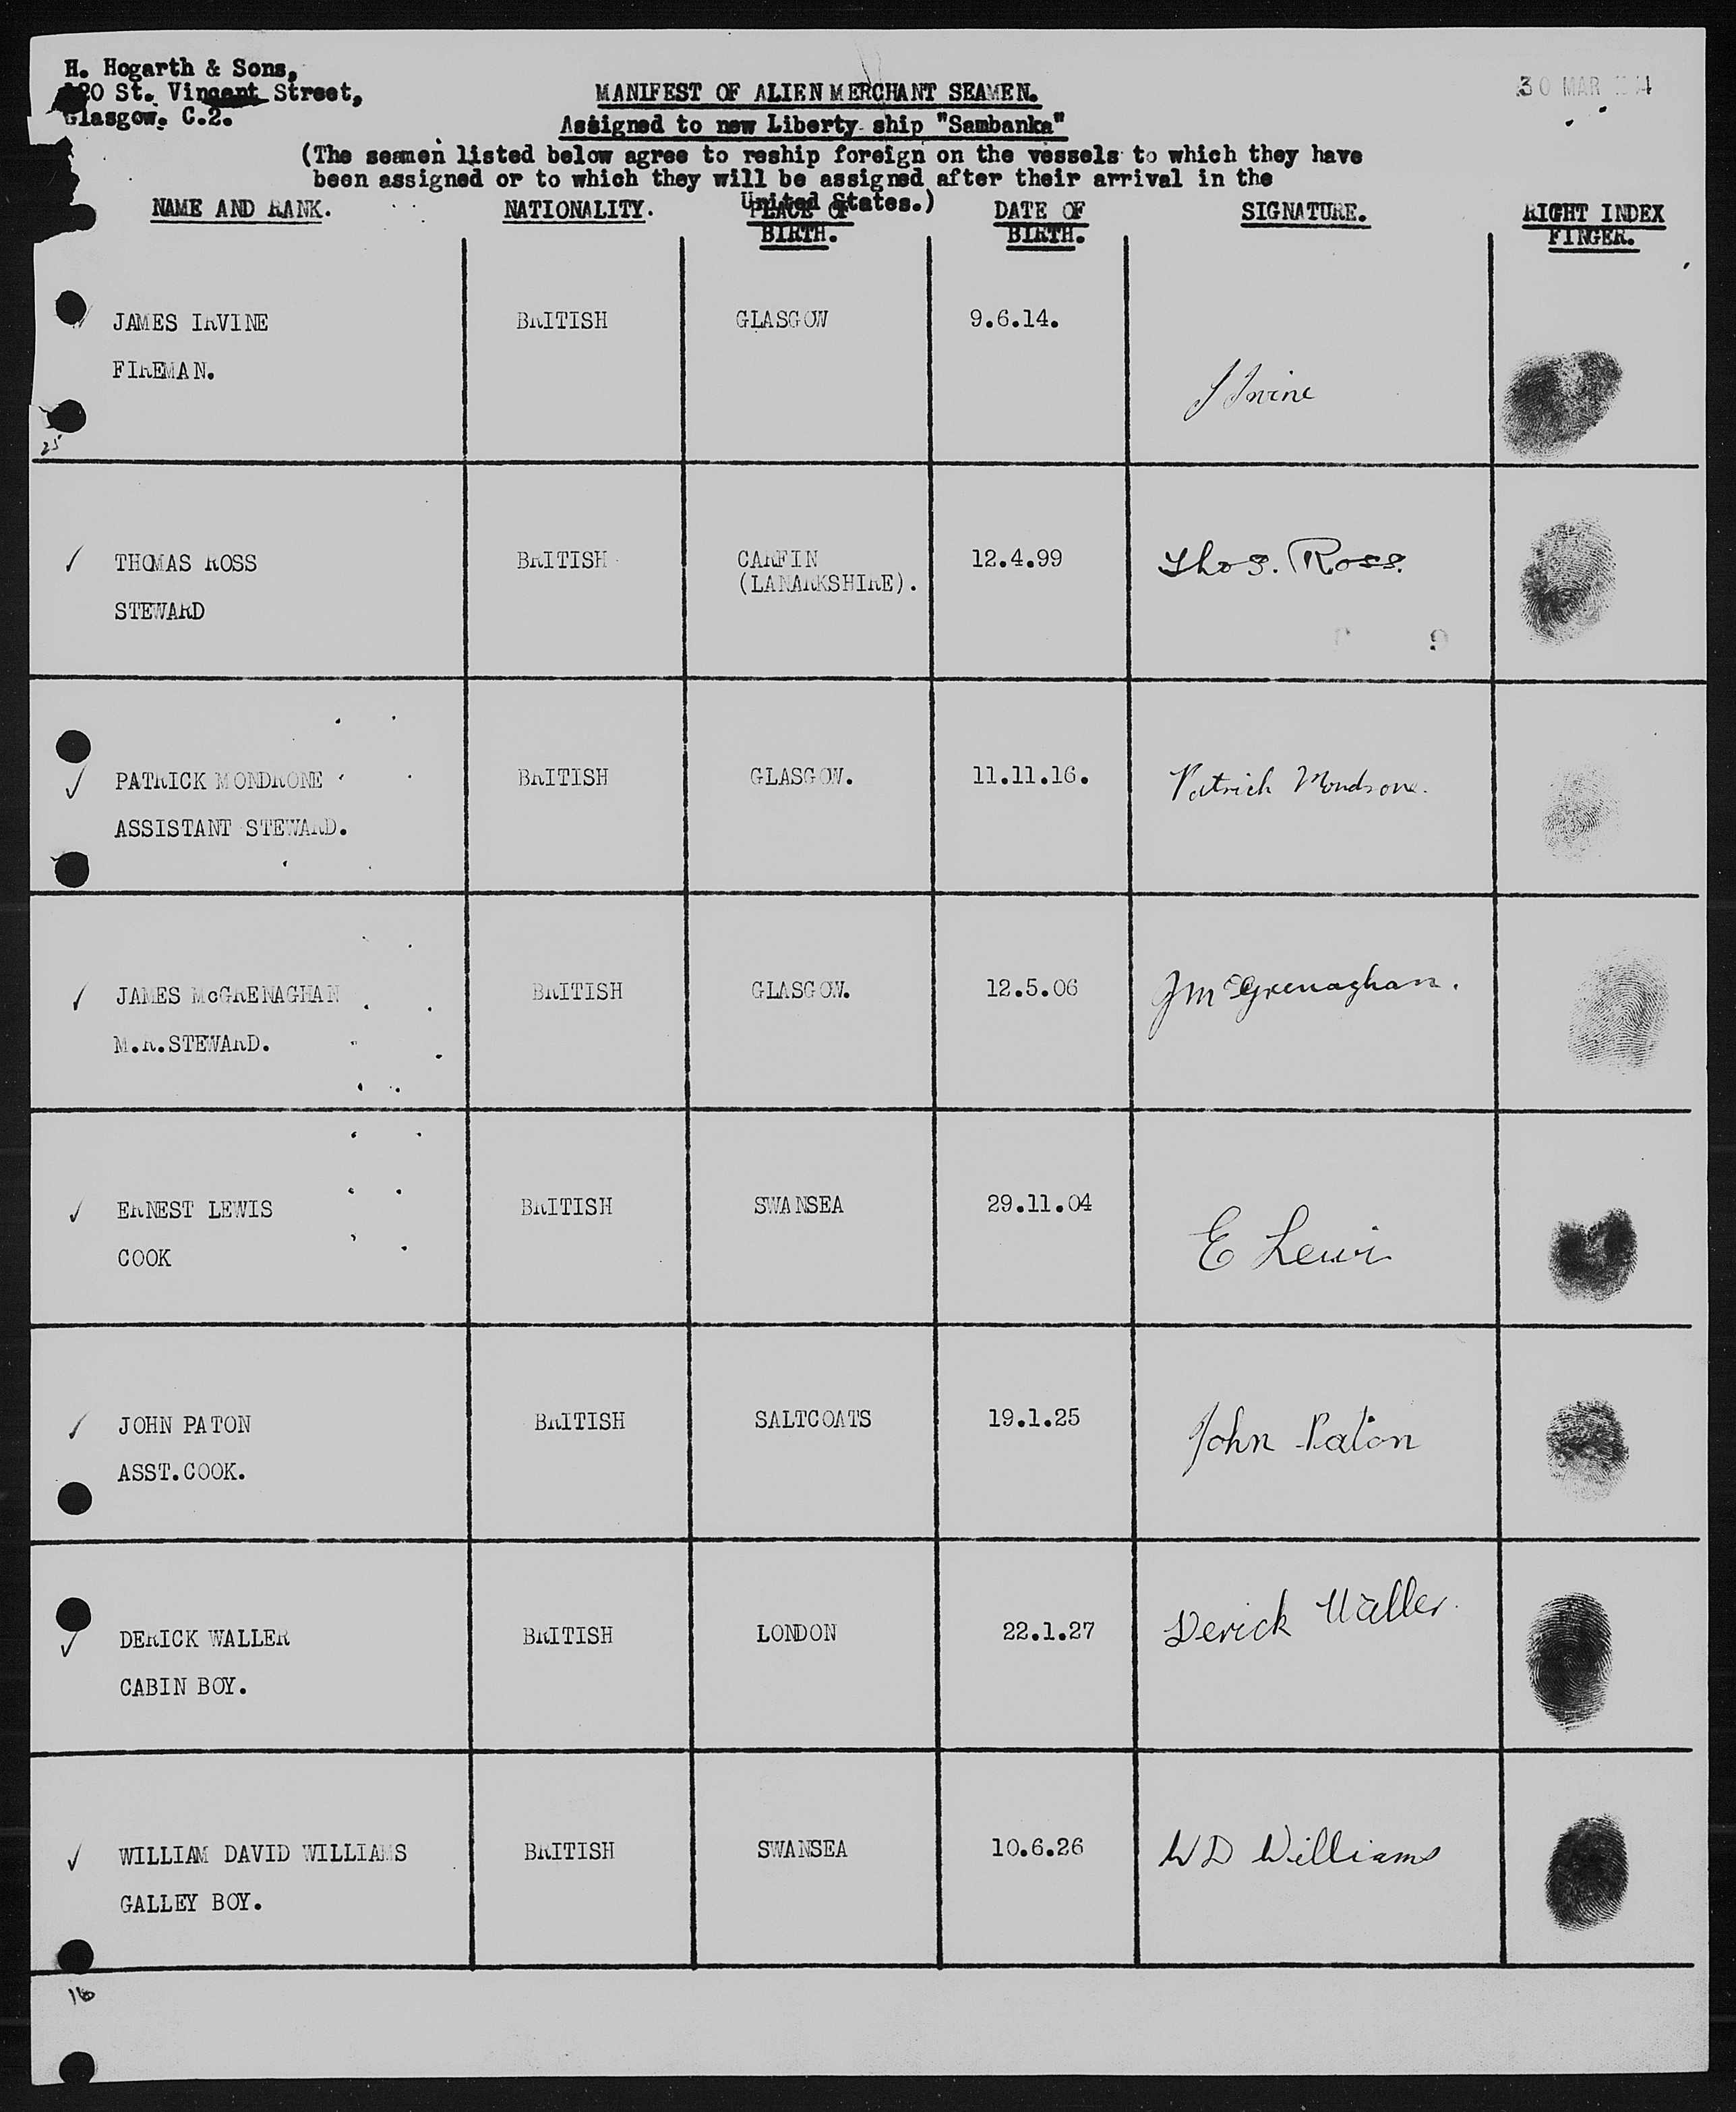 H. Hogarth & Sons,
120 St. Vincent Street,
Glasgow. C.2.
30 MAR
MANIFEST OF ALIEN MERCHANT SEAMEN.
Assigned to new Liberty ship "Sambanka"
(The seamen listed below agree to reship foreign on the vessels to which they have
been assigned or to which they will be assigned after their arrival in the
United States.)
NAME AND RANK. NATIONALITY. PLACE OF BIRTH. DATE OF BIRTH. SIGNATURE. RIGHT INDEX FINGER.
JAMES IRVINE BRITISH GLASGOW 9.6.14.
FIREMAN.
J Irvine
25
THOMAS ROSS BRITISH CARFIN 12.4.99 Thos. Ross.
(LANARKSHIRE).
STEWARD
9
PATRICK MONDRONE BRITISH GLASGOW. 11.11.16. Patrick Mondrone.
ASSISTANT STEWARD.
JAMES McGRENAGHAN BRITISH GLASGOW. 12.5.06 J McGrenaghan.
M.R.STEWARD.
ERNEST LEWIS BRITISH SWANSEA 29.11.04
COOK E Lewis
JOHN PATON BRITISH SALTCOATS 19.1.25 John Paton
ASST.COOK.
DERICK WALLER BRITISH LONDON 22.1.27 Derick Waller.
CABIN BOY.
WILLIAM DAVID WILLIAMS BRITISH SWANSEA 10.6.26 W D Williams
GALLEY BOY.